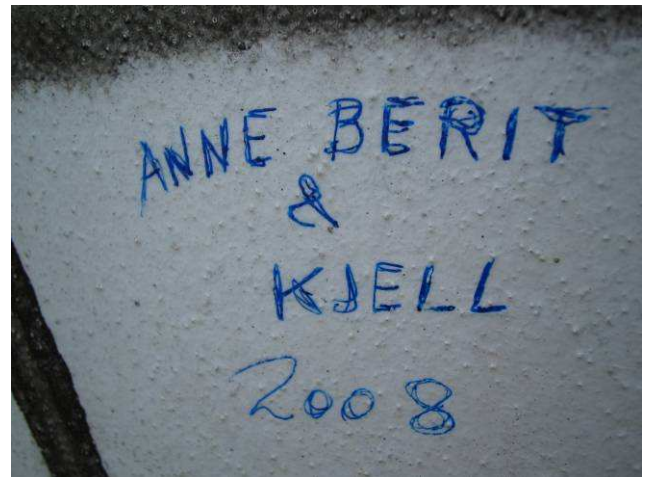 ANNE BERIT
&
KJELL
2008